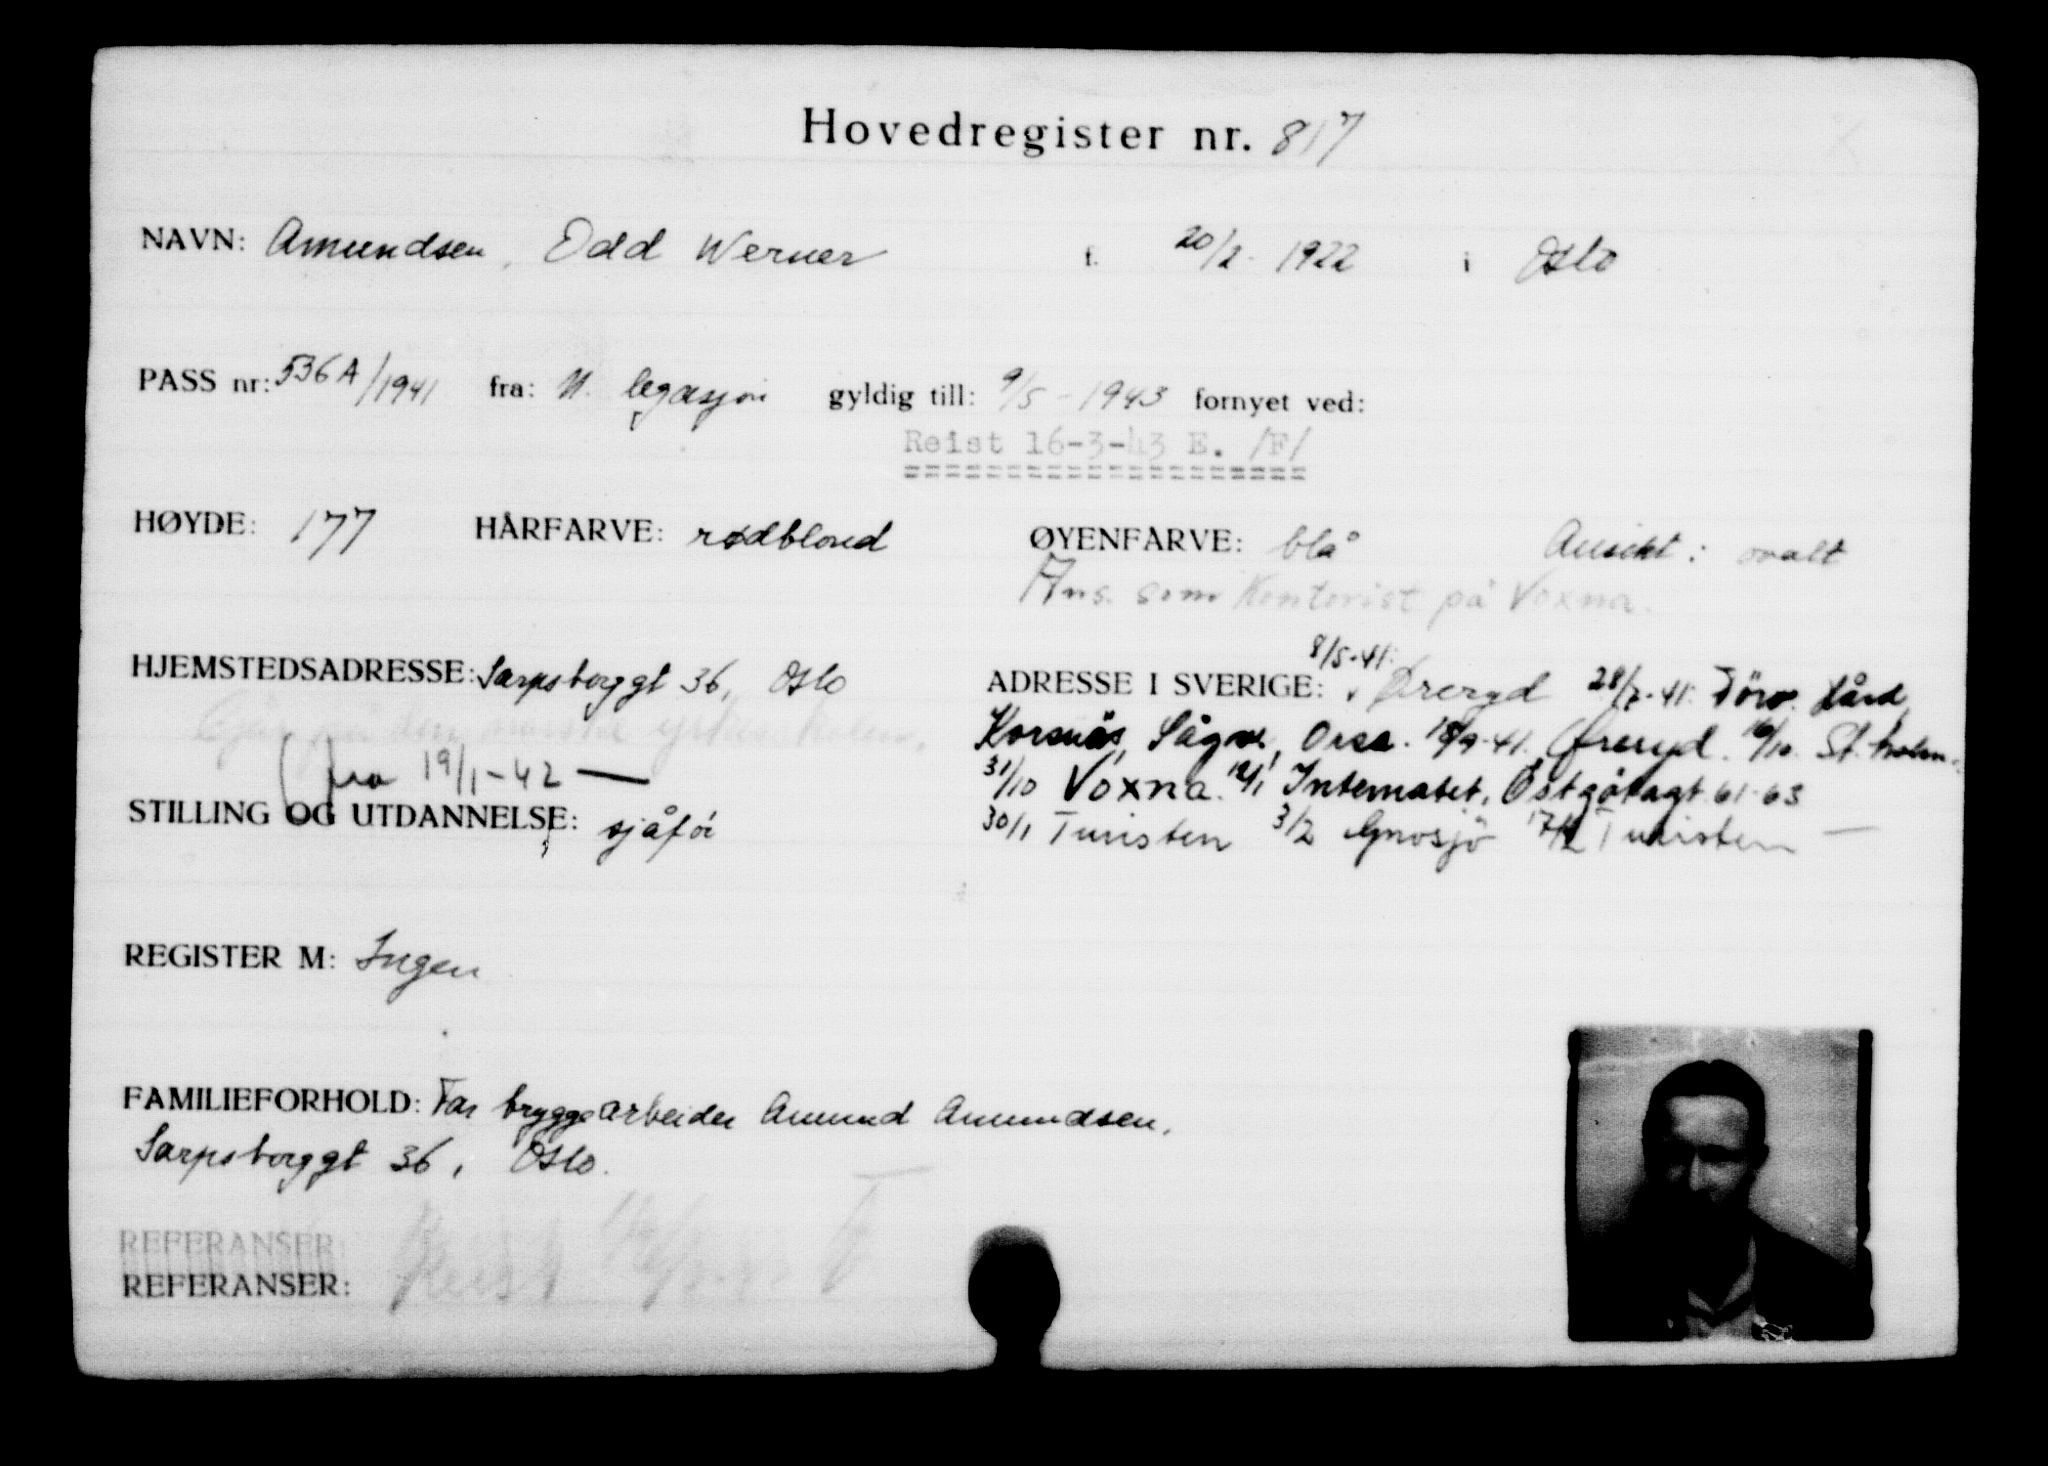 Hovedregister nr. 817
NAVN: Amundsen, Odd Werner f. 20/2- 1922 i Oslo
PASS nr: 536A/1941 fra: N. legasjon gyldig till: 9/5-1943 fornyet ved:
Reist 16-3-43 E. /F/
HØYDE: 177 HÅRFARVE: rødblond ØYENFARVE: blå Ansikt: ovalt
Ans. som Kontorist på Voxna.
8/5-41:
HJEMSTEDSADRESSE: Sarpsborggt 36, Oslo ADRESSE I SVERIGE: Øreryd 28/7-41: Törv. Gård,
på den norske yrkesskolen. Korsnäs, Orsa. 18/9-41. Øreryd. 16/10. St.holm.
fra 19/1-42 — 31/10 Voxna. 12/1 Internatet, Östgötagt. 61-63
STILLING OG UTDANNELSE: sjåfør 30/1 Turisten 3/2 Gnosjö 17/2 Turisten —
REGISTER M: Ingen
FAMILIEFORHOLD: Far bryggearbeider Amund Amundsen,
Sarpsborggt 36, Oslo.
REFERANSER:
REFERANSER: Reist F